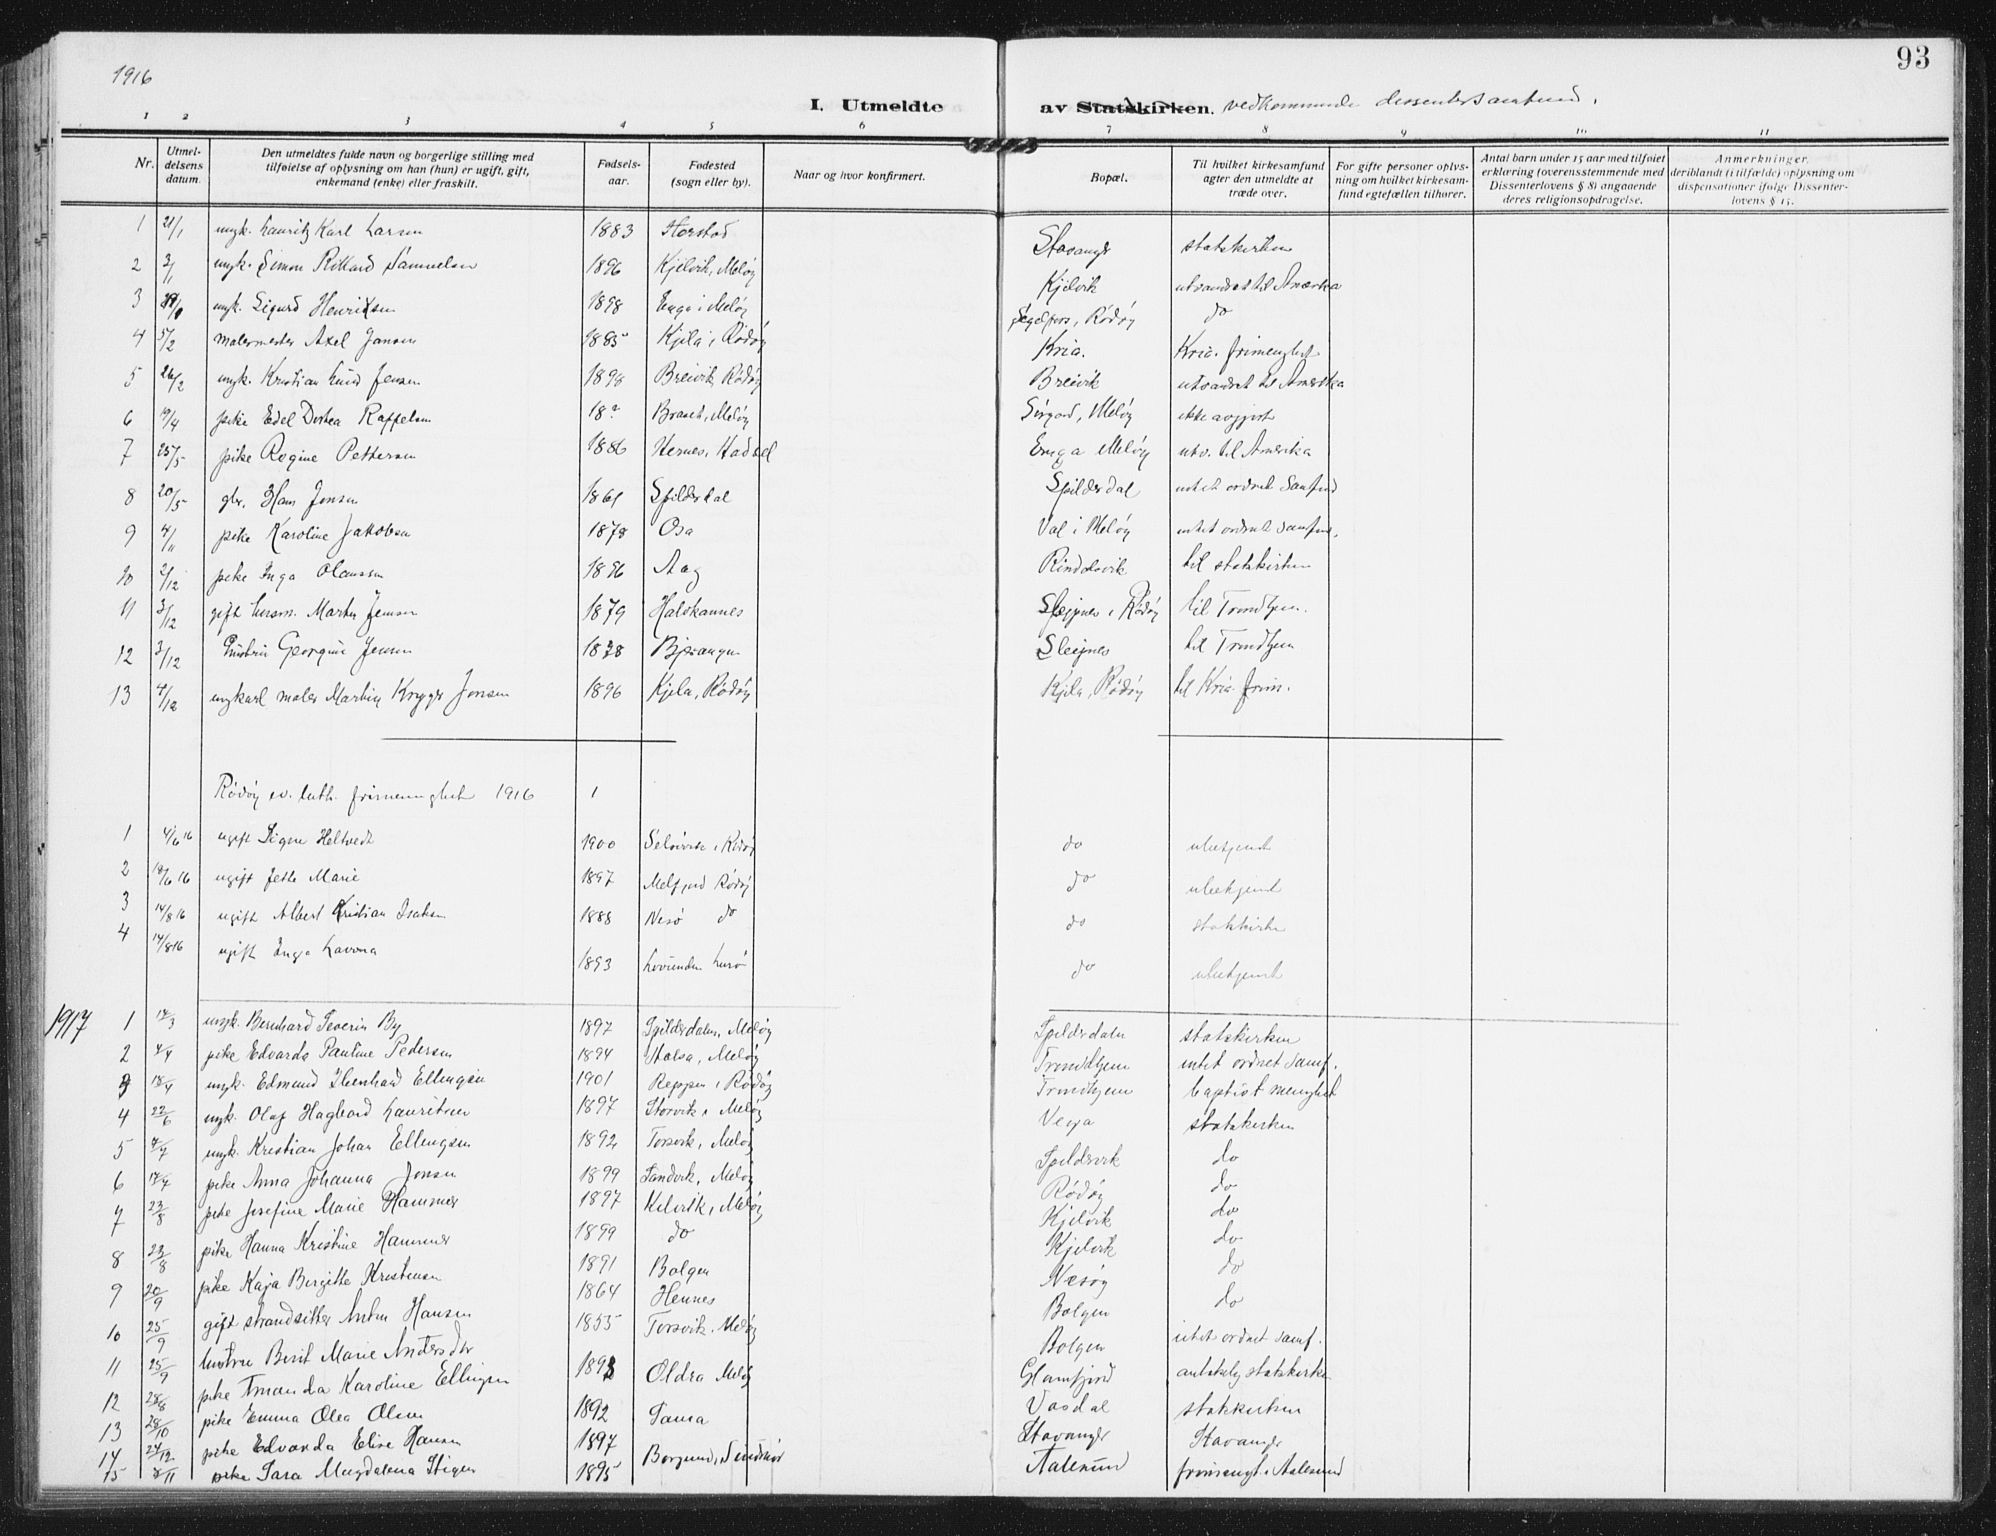 1916
93
I. Utmeldte av Statskirken. vedkommende dissentersamfund.
1 2 3 4 5 6 7 8 9 10 11
Nr. | Utmeldelsens datum. | Den utmeldtes fulde navn og borgerlige stilling med tilføielse af oplysning om han (hun) er ugift, gift, enkemand (enke) eller fraskilt. | Fødselsaar. | Fødested (sogn eller by). | Naar og hvor konfirmert. | Bopæl. | Til hvilket kirkesamfund agter den utmeldte at træde over. | For gifte personer oplysning om hvilket kirkesamfund egtefællen tilhører. | Antal barn under 15 aar med tilføiet erklæring (overensstemmende med Dissenterlovens § 8) angaaende deres religionsopdragelse. | Anmerkninger, deriblandt (i tilfælde) oplysning om dispensationer ifølge Dissenterlovens § 15.
1 21/1 ungk. Lauritz Karl Larsen 1883 Horstad Stavanger statskirken
2 3/1 ungk. Simon Rikkard Samuelsen 1896 Kjelvik, Meløy Kjelvik utvandret til Amerika
3 ungk. Sigurd Henriksen 1898 Enga i Meløy Segelfors, Rödöy do
4 5/2 malermester Axel Jansen 1885 Kjila i Rödöy Kria. Kria. frimenighet
5 26/2 ungk. Kristian Lind Jensen 1898 Breivik, Rödöy Breivik utvandret til Amerika
6 19/4 pike Edel Dortea Raffelsen 18? Braset, Meløy Sörgard, Meløy ikke avgjort
7 25/5 pike Regine Pettersen 1886 Hernes, Hadsel Enga Meløy utv. til Amerika
8 20/5 gbr. Hans Jensen 1861 Spilderdal Spilderdal intet ordnet Samfund
9 4/11 pike Karoline Jakobsen 1878 Osa Val i Meløy intet ordnet samfund.
10 2/12 pike Inga Olaussen 1896 Aag Rinddsvik til statskirken
11 3/12 gift husm. Martin Jensen 1879 Halskannes Sleipnes i Rödöy til Trondhjem.
12 3/12 Hustru Georgine Jensen 1838 Bjerangen Sleipnes til Trondhjem
13 4/12 ungkarl maler Martin Krygger Jonsen 1896 Kjila, Rödöy Kjila, Rödöy til Kria. frim.
Rödöy ev. luth. frimenighet 1916 1
1 4/6 16 ugift Signe Heltvedt 1900 Selsövik i Rödöy do ubekjendt
2 18/6 16 ugift Jette Marie 1897 Melfjord Rödöy do ubekjent
3 14/8 16 ugift Albert Kristian Isaksen 1888 Nesö do do statskirke
4 14/8 16 ugift Inga Lavona 1893 Lovunden Lurö do ubekjent
1917
1 14/3 ungk. Bernhard Severin By 1897 Spildrdalen, Meløy Spildrdalen statskirken
2 4/4 pike Edvarda Pauline Pedersen 1894 Halsa, Meløy Trondhjem intet ordnet Samf.
3 18/4 ungk. Edmund Ibenhard Ellingsen 1901 Reppen i Rödöy Trondhjem baptist menighet
4 22/6 ungk. Olaf Hagbard Lauritsen 1897 Storvik i Meløy Vega statskirken
5 4/7 ungk. Kristian Johan Ellingsen 1892 Torsvik, Meløy Spildrvik do
6 14/7 pike Anna Johanna Jonsen 1899 Sandvik, Meløy Rödöy do
7 23/8 pike Josefine Marie Hammer 1897 Kelvik, Meløy Kjelvik do
8 23/8 pike Hanna Kristine Hammer 1899 do Kjelvik do
9 20/9 pike Kaja Birgitte Kristensen 1891 Bolgen Nesöy do
10 25/9 gift strandsitter Anton Hansen 1864 Hennes Bolgen do
11 25/9 hustru Berit Marie Andersdtr 1855 Torsvik, Meløy Bolgen intet ordnet samf.
12 28/8 pike Amanda Karoline Ellingsen 1898 Oldra Meløy Glomfjord antakelig statskirke
13 28/10 pike Emma Olea Olsen 1892 Saura Vasdal statskirken
14 24/12 pike Edvarda Elise Hansen 1897 Stavanger Stavanger
15 8/11 pike Sara Magdalena Stigen 1895 Borgund, Söndmör Aalesund frimengt. Aalesund